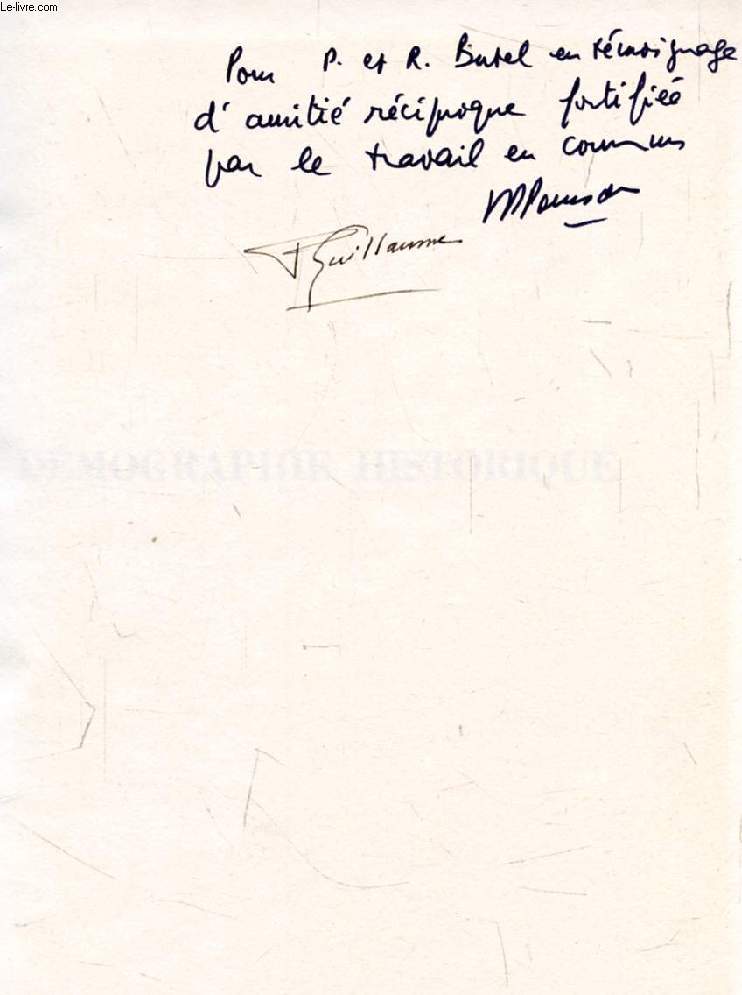 Le-livre.com
Pour P. et R. Butel en témoignage
d'amitié réciproque fortifiée
par le travail en commun
Guillaume
DEMOGRAPHIE HISTORIQUE